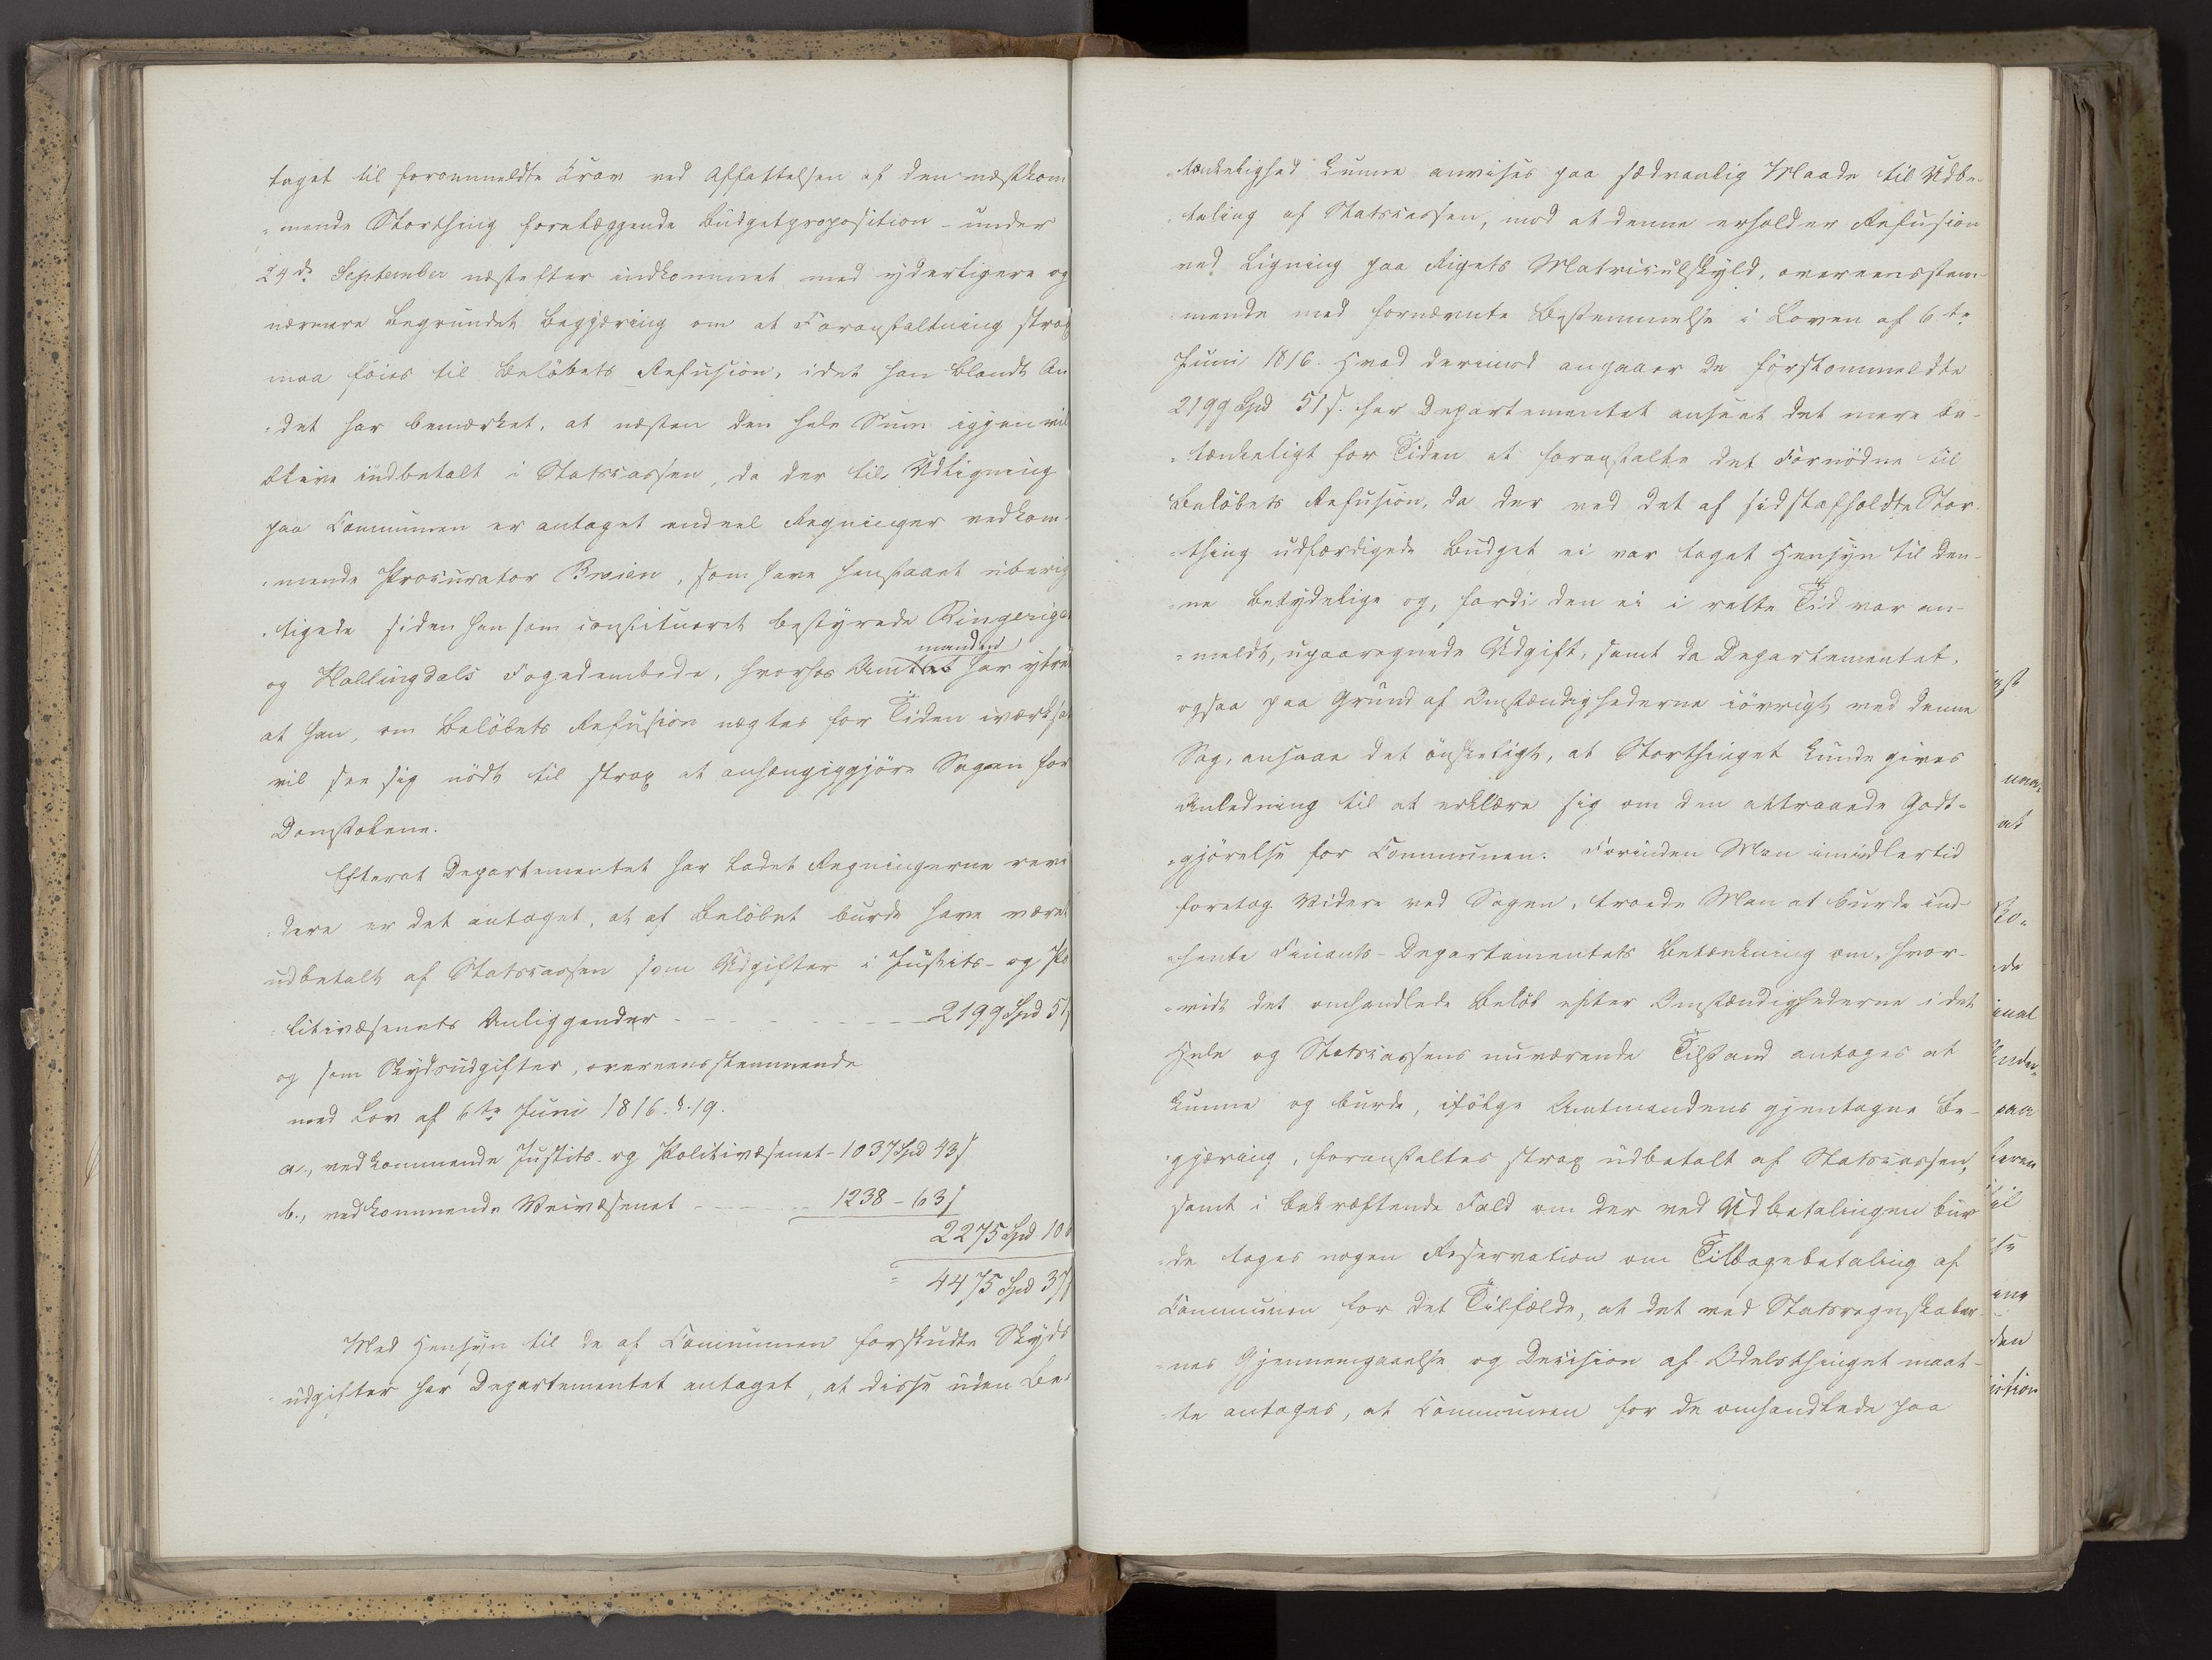 taget til forommeldte Krav ved Affattelsen af den næstkom
mende Storthing forelæggende Budgetproposition – under
24de September næstefter indkommet med yderligere og
nærmere begrundet Begjæring om at Foranstaltning strax
maa föies til Belöbets Refusion, idet han blandt An
det har bemærket, at næsten den hele Sum igjen vil
blive indbetalt i Statscassen, da der til Udligning
paa Communen er antaget endeel Regninger vedkom
mende Procurator Breien, som have henstaaet uberig
tigede siden han som constitueret bestyrede Ringeriges
og Hallingdals Fogedembede, hvorhos Amtmanden har yttret
at han, om Belöbets Refusion nægtes for Tiden iværksat
vil see sig nödt til strax at anhængiggjöre Sagen for
Domstolene.
Efterat Departementet har ladet Regningerne revi
dere er det antaget, at af Belöbet burde have været
udbetalt af Statscassen som Udgifter i Justits- og Po
litivæsenets Anliggender - - - 2199 Spd 51
og som Skydsudgifter, overeensstemmende
med Lov af 6te Juni 1816 §. 19.
a., vedkommende Justits- og Politivæsenet - 1037 Spd 43 s
b., vedkommende Veivæsenet - - - 1238 - 63 s
2275 Spd 106
= 4475 Spd 37
Med Hensyn til de af Communen forskudte Skyds
udgifter har Departementet antaget, at disse uden Be
tænkelighed kunne anvises paa sædvanlig Maade til Udbe-
taling af Statscassen, mod at denne erholder Refusion
ved Ligning paa Rigets Matriculskyld, overeensstem-
mende med fornævnte Bestemmelse i Loven af 6te
Juni 1816. Hvad derimod angaaer de förstommeldte
2199 Spd 51 s. har Departementet anseet det mere be-
tænkeligt for Tiden at foranstalte det Fornödne til
Belöbets Refusion, da der ved det af sidstafholdte Stor-
thing udfærdigede Budget ei var taget Hensyn til den-
ne betydelige og, fordi den ei i rette Tid var an-
meldt, upaaregnede Udgift, samt da Departementet,
ogsaa paa Grund af Omstændighederne iövrigt ved denne
Sag, ansaae det önskeligt, at Storthinget kunde gives
Anledning til at erklære sig om den attraaede Godt-
gjörelse for Communen. Forinden Man imidlertid
foretog Videre ved Sagen, troede Man at burde ind-
hente Finants-Departementets Betænkning om, hvor-
vidt det omhandlede Belöb efter Omstændighederne i det
Hele og Statscassens nuværende Tilstand antages at
kunne og burde, ifölge Amtmandens gjentagne Be-
gjæring, foranstaltes strax udbetalt af Statscassen,
samt i bekræftende Fald om der ved Udbetalingen bur
de tages nogen Reservation om Tilbagebetaling af
Communen for det Tilfælde, at det ved Statsregnskaber-
nes Gjennemgaaelse og Decision af Odelsthinget maat-
te antages, at Communen for de omhandlede paa